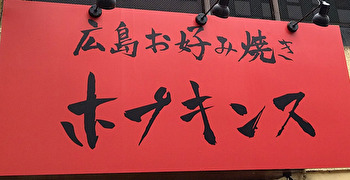 広島お好み焼き
ホプキンス